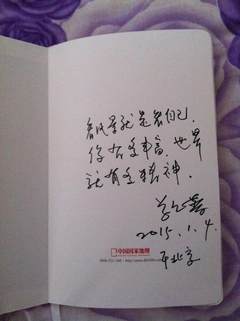 看风景就是看自己，
你有多丰富，世界
就有多精神。
2015.1.4.
于北京
中国国家地理